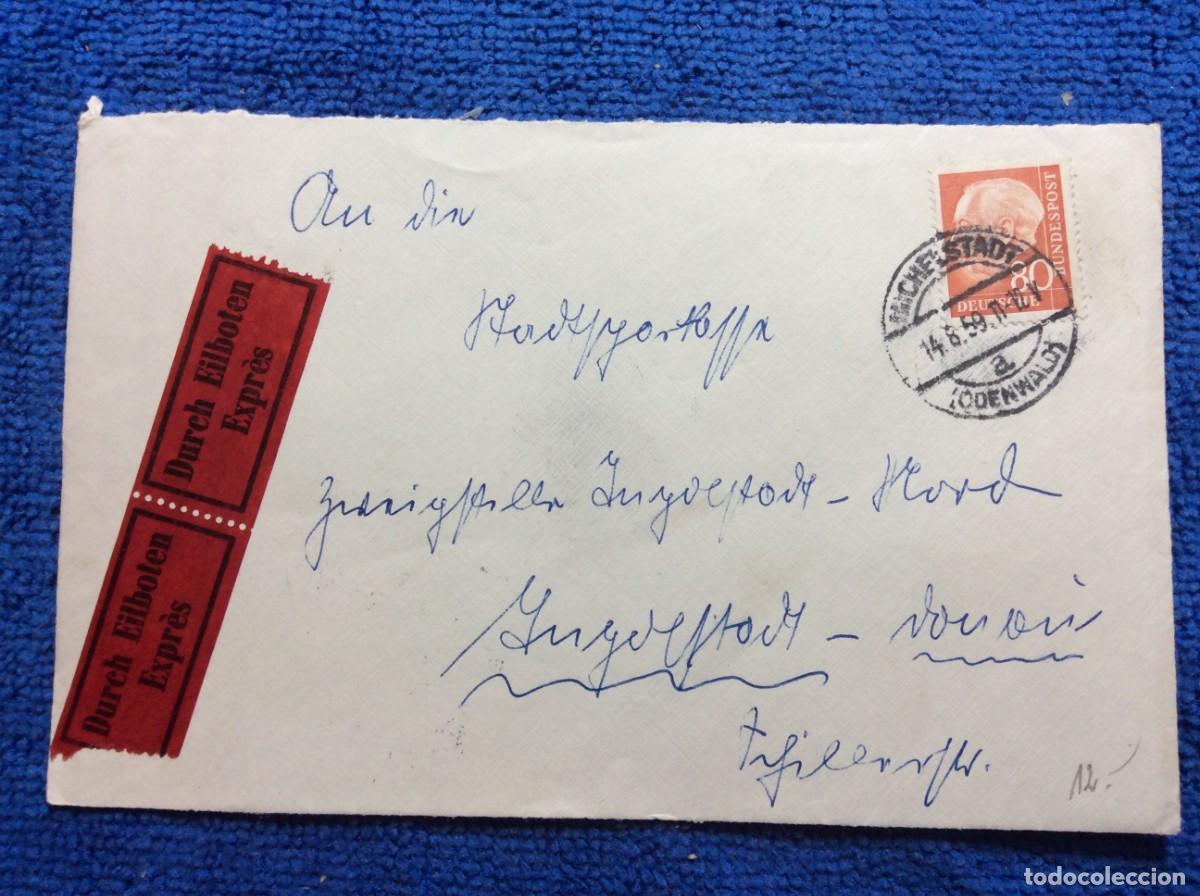 An die
Stadtsparkasse
Zweigstelle Ingolstadt – Nord
Ingolstadt – Donau
Schillerstr.
Durch Eilboten
Exprès
Durch Eilboten
Exprès
BUNDESPOST
80
DEUTSCHE
MICHELSTADT
14.8.59.11
a
(ODENWALD)
12.-
todocoleccion